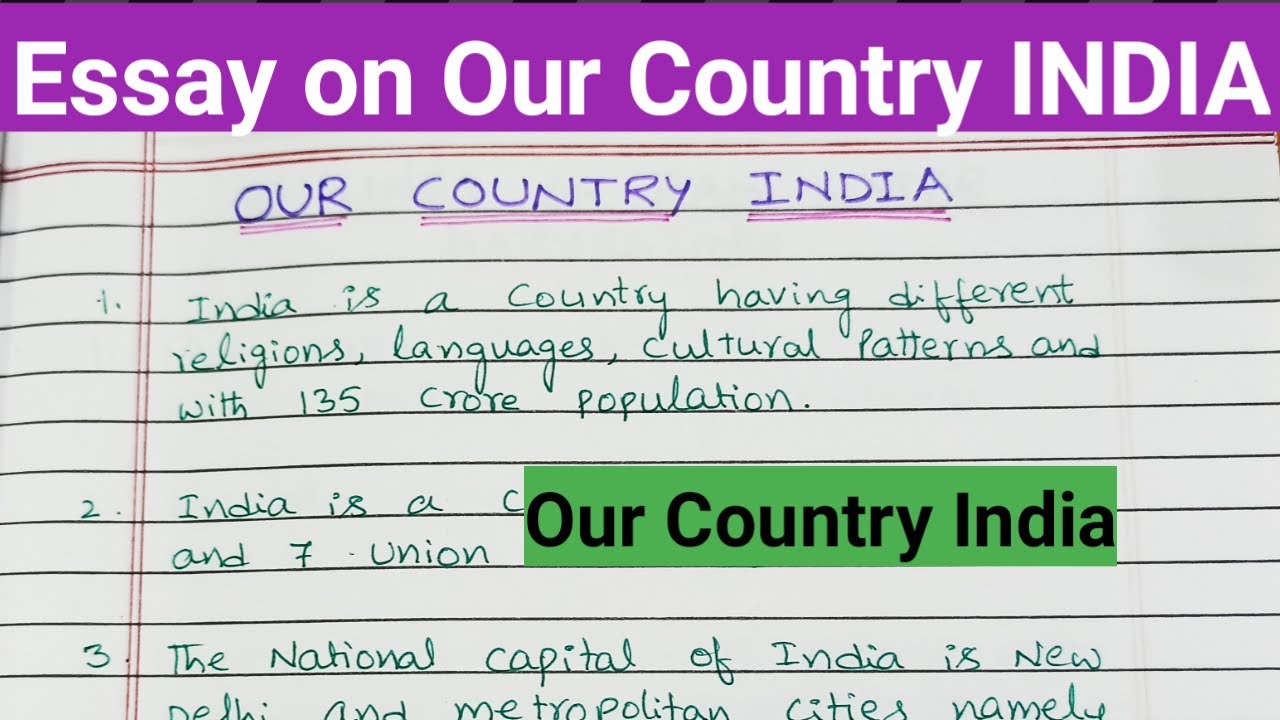 Essay on Our Country INDIA
OUR COUNTRY INDIA
1. India is a Country having different
religions, languages, cultural Patterns and
with 135 crore population.
2. India is a C
Our Country India
and 7 Union
3. The National capital of India is New
Delhi and metropolitan cities namely